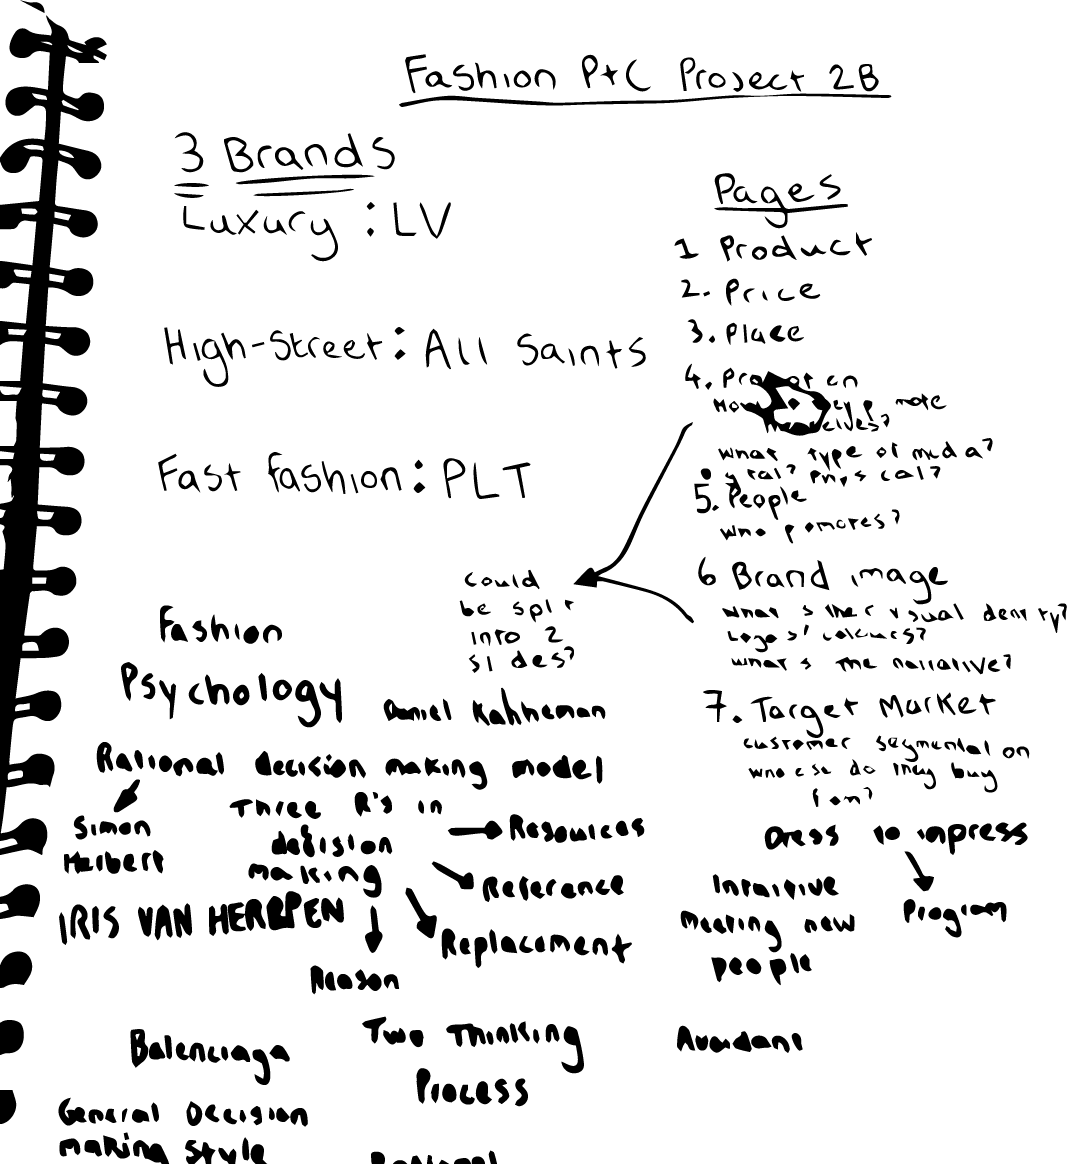 Fashion P+C Project 2B
3 Brands
Luxury : LV
High-Street: All Saints
Fast fashion: PLT
Pages
1 Product
2. Price
3. Place
4.
What type of
5. People
who
6 Brand image
what's the narrative?
7. Target Market
customer
do they buy
could
be split
into 2
slides?
Fashion
Psychology
Daniel Kahneman
Rational decision making model
Simon
Herbert
Three R's in
decision
making
Resources
Reference
Replacement
Reason
IRIS VAN HERPEN
Dress to impress
Program
Intuitive
Meeting new
people
Balenciaga
Two Thinking
Process
Avoidant
General Decision
making style
Rational